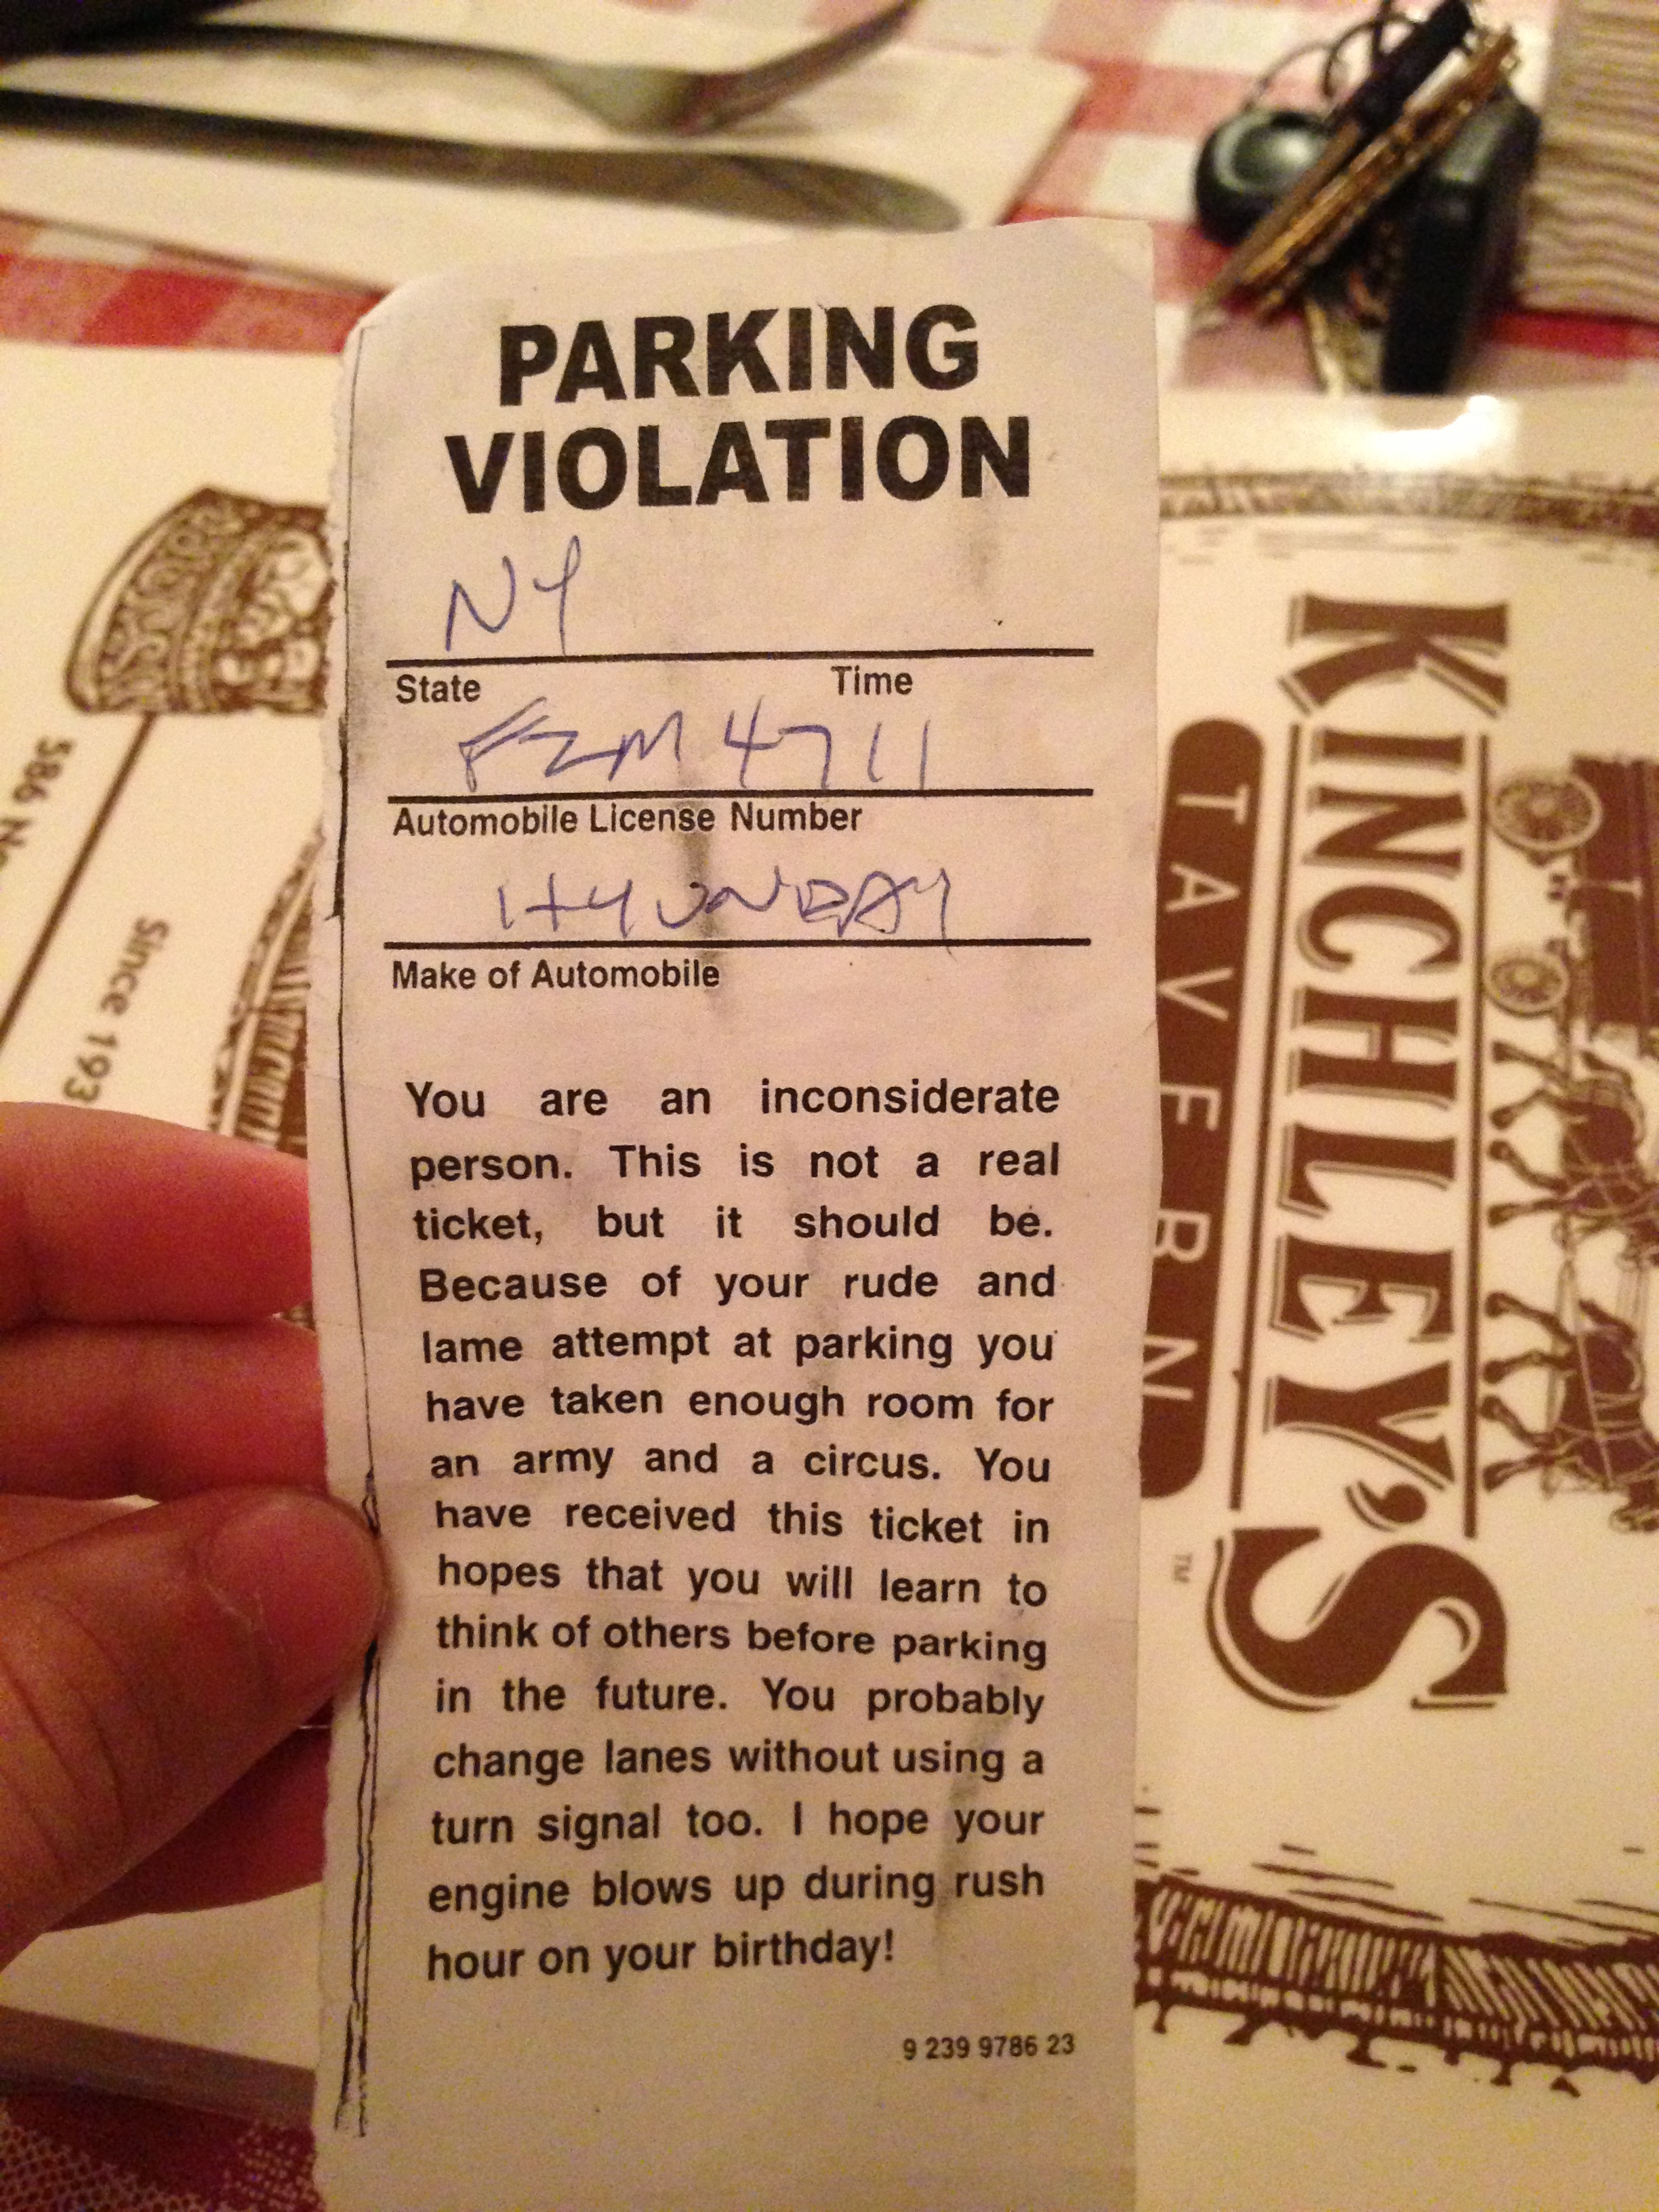 PARKING
VIOLATION
NY
State Time
FZM 4711
Automobile License Number
HYUNDAY
Make of Automobile
You are an inconsiderate
person. This is not a real
ticket, but it should be.
Because of your rude and
lame attempt at parking you
have taken enough room for
an army and a circus. You
have received this ticket in
hopes that you will learn to
think of others before parking
in the future. You probably
change lanes without using a
turn signal too. I hope your
engine blows up during rush
hour on your birthday!
9 239 9786 23
KINCHLEY'S
TAVERN
TM
586
Since 193